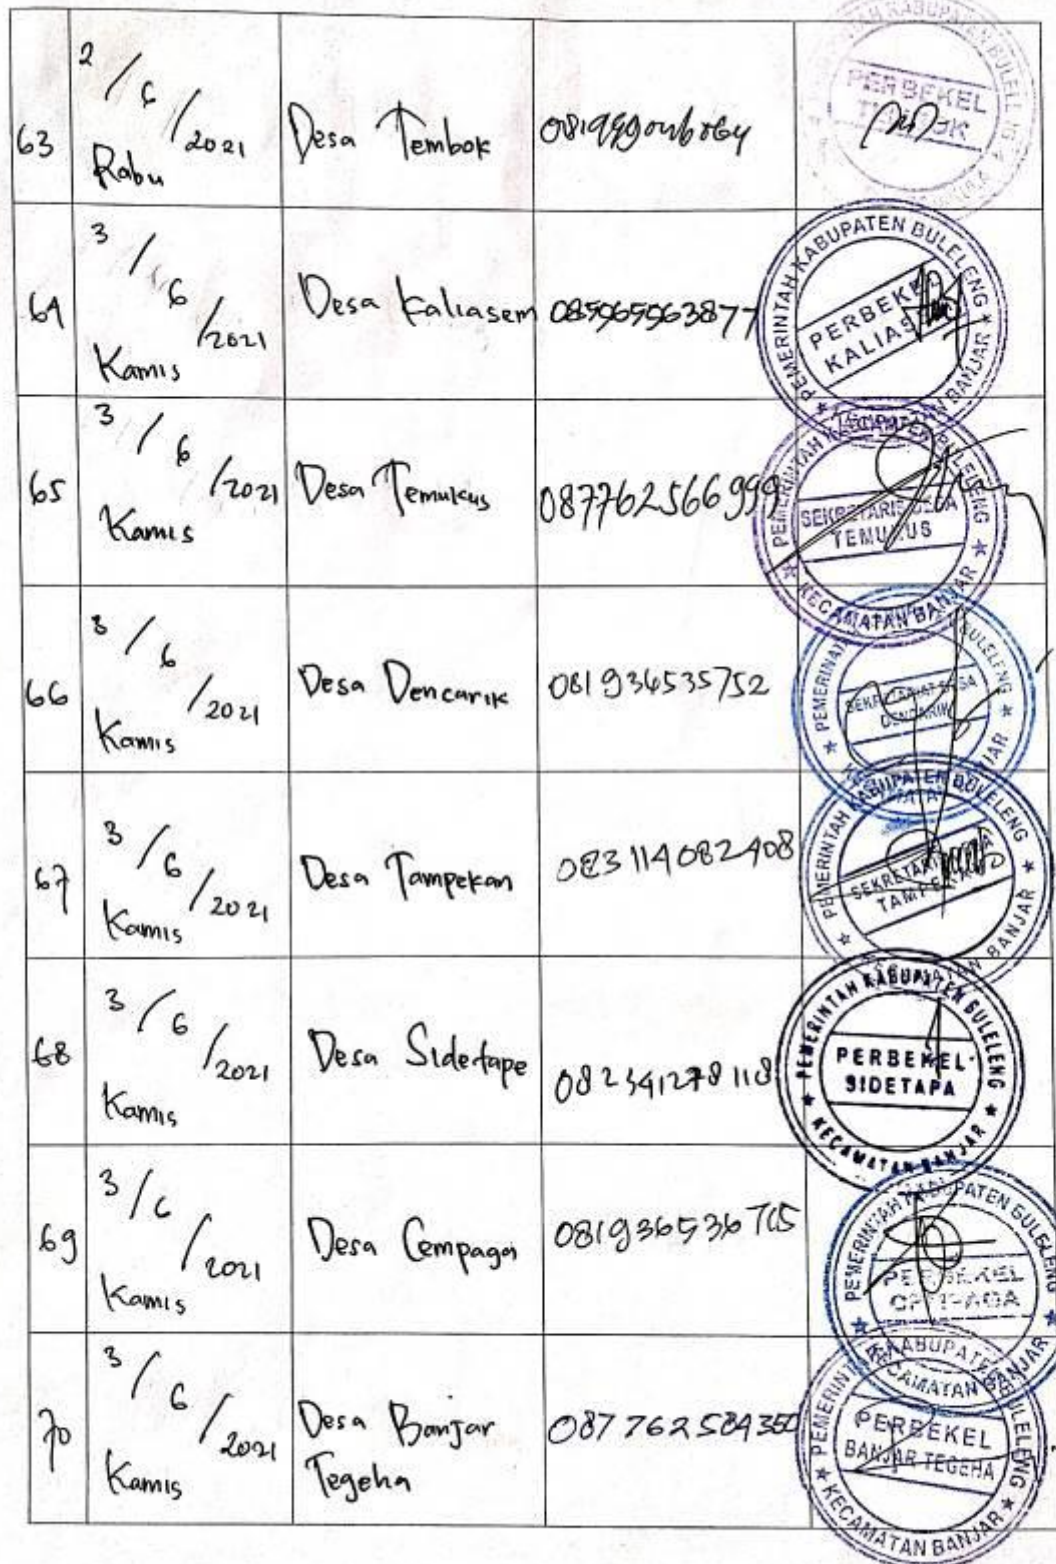 63
2/6/2021
Rabu
Desa Tembok
PEMERINTAH KABUPATEN BULELENG
PERBEKEL
64
3/6/2021
Kamis
Desa Kaliasem
085965963877
PEMERINTAH KABUPATEN BULELENG
PERBEKEL
KALIAS
BANJAR
65
3/6/2021
Kamis
Desa Temukus
087762566999
PEMERINTAH KABUPATEN BULELENG
SEKRETARIS DESA
TEMUKUS
KECAMATAN BANJAR
66
3/6/2021
Kamis
Desa Dencarik
081934535752
PEMERINTAH BULELENG
SEKRETARIAT DESA
DENCARIK
67
3/6/2021
Kamis
Desa Tampekan
083114082408
PEMERINTAH KABUPATEN BULELENG
SEKRETARI
TAMPEK
KECAMATAN BANJAR
68
3/6/2021
Kamis
Desa Sidetape
082341278118
PEMERINTAH KABUPATEN BULELENG
PERBEKEL
SIDETAPA
KECAMATAN BANJAR
69
3/6/2021
Kamis
Desa Cempaga
081936536765
PEMERINTAH KABUPATEN BULELENG
PERBEKEL
CEMPAGA
KECAMATAN BANJAR
70
3/6/2021
Kamis
Desa Banjar
Tegeha
087762584350
PEMERINTAH KABUPATEN BULELENG
PERBEKEL
BANJAR TEGEHA
KECAMATAN BANJAR